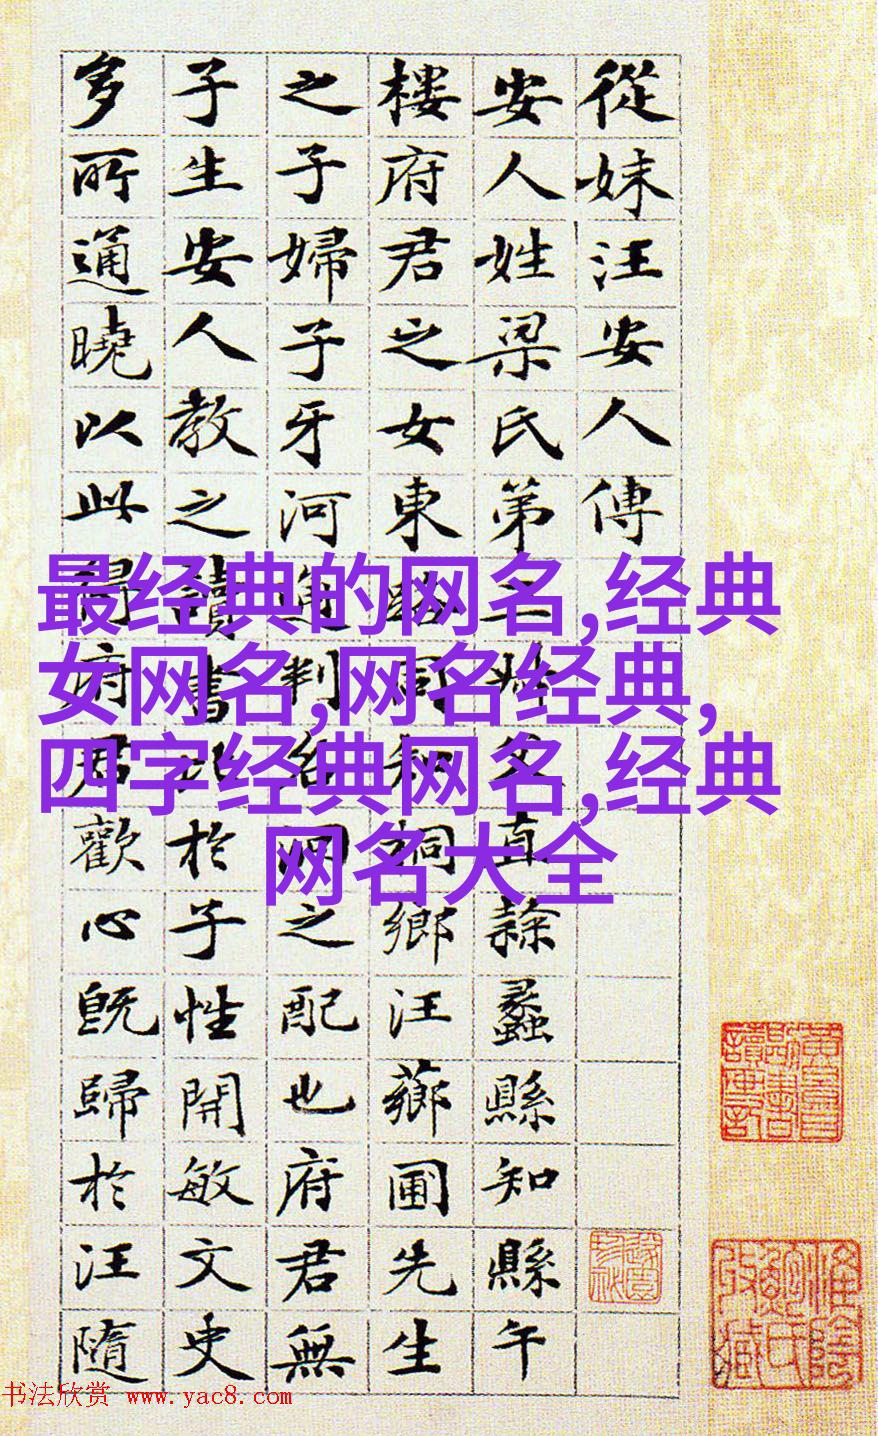 從妹汪安人傳
安人姓梁氏弟父直隸蠡縣知縣午
樓府君之女東路同知桐鄉汪薌圃先生
之子婦子牙河通判之配也府君無
子生安人教之讀書比於子性開敏文史
多所通曉以此得府君歡心既歸於汪隨
最经典的网名,经典
女网名,网名经典,
四字经典网名,经典
网名大全
书法欣赏 www.yac8.com